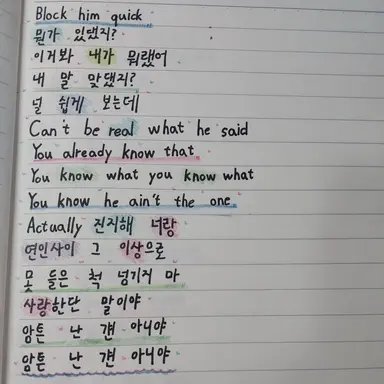 Block him quick
뭔가 있댔지?
이거봐 내가 뭐랬어
내 말 맞댔지?
널 쉽게 보는데
Can't be real what he said
You already know that
You know what you know what
You know he ain't the one
Actually 진지해 너랑
연인사이 그 이상으로
못 들은 척 넘기지 마
사랑한단 말이야
암튼 난 걘 아니야
암튼 난 걘 아니야